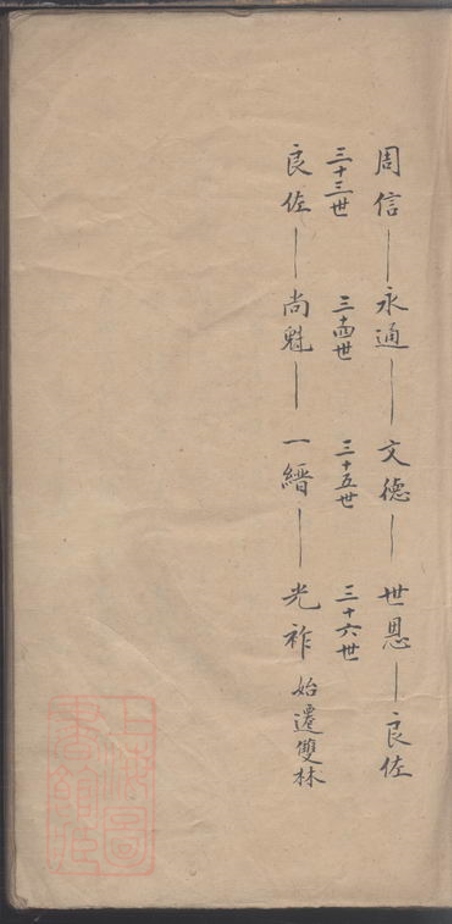 周信—永通—文德—世恩—良佐
三十三世 三十四世 三十五世 三十六世
良佐—尚魁—一縉—光祚 始遷雙林
上海圖書館藏